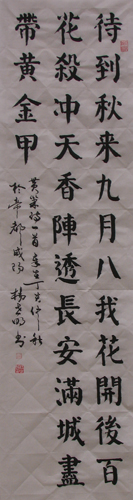 待到秋來九月八我花開後百
花殺冲天香陣透長安滿城盡
帶黃金甲
黃巢詩一首
於帝都咸陽 書